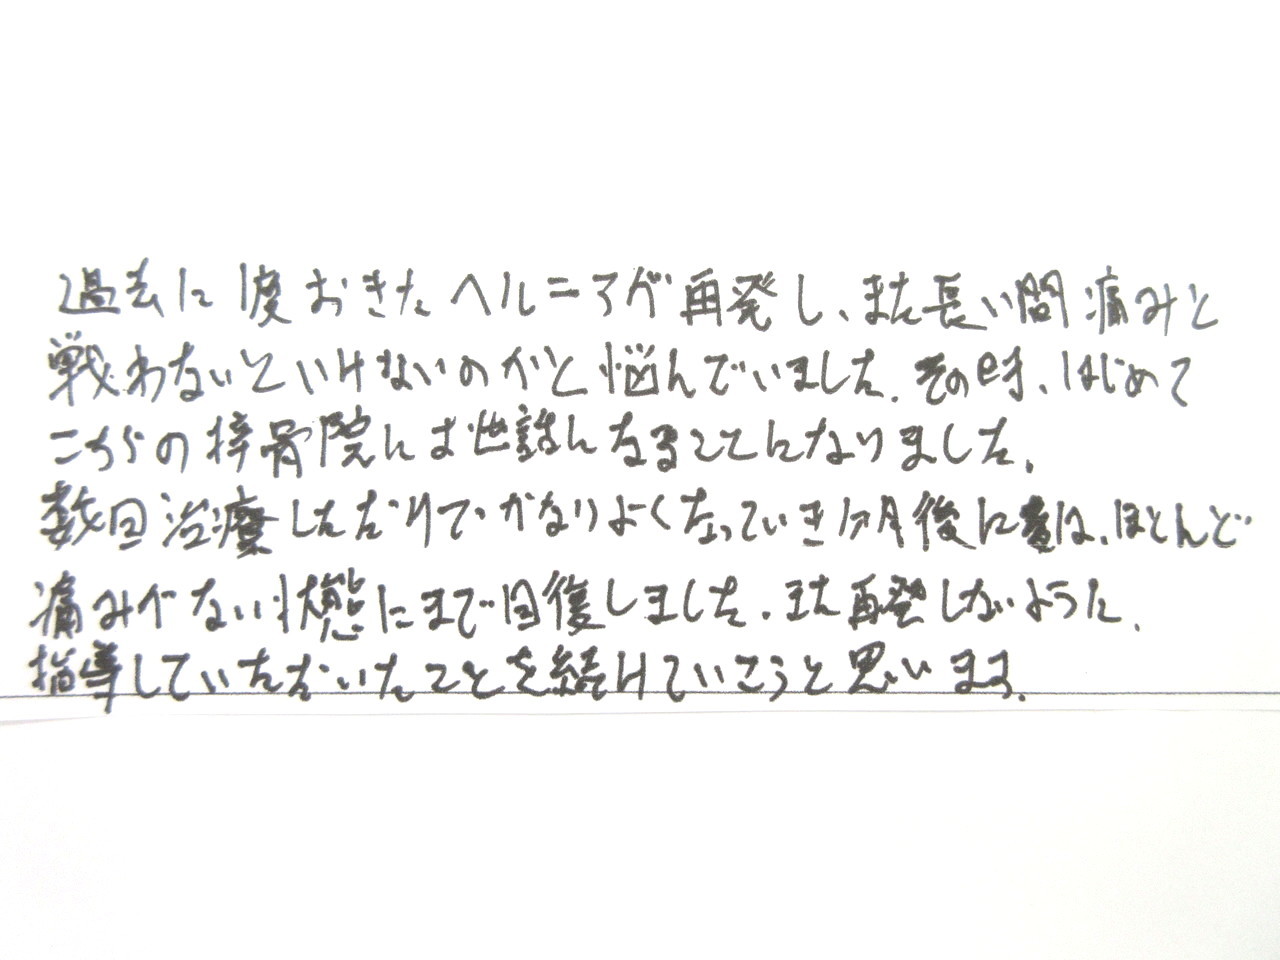 過去に1度おきたヘルニアが再発し、また長い間痛みと
戦わないといけないのかと悩んでいました。その時、はじめて
こちらの接骨院にお世話になることになりました。
数回治療しただけで、かなりよくなっていき1ヶ月後には、ほとんど
痛みがない状態にまで回復しました。また再発しないように、
指導していただいたことを続けていこうと思います。